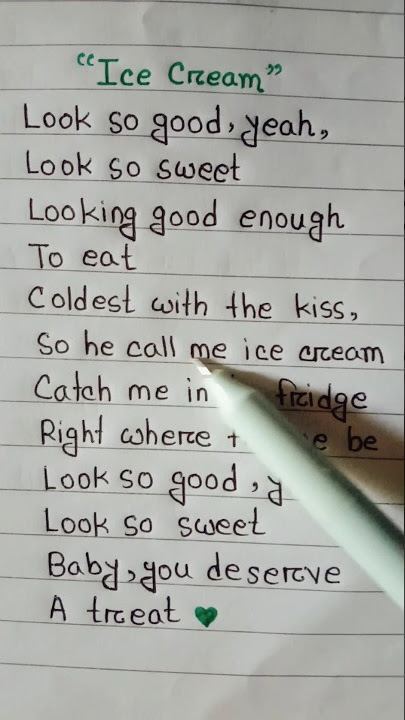 “Ice Cream”
Look so good, yeah,
Look so sweet
Looking good enough
To eat
Coldest with the kiss,
So he call me ice cream
Catch me in fridge
Right where be
Look so good, y
Look so sweet
Baby, you deserve
A treat